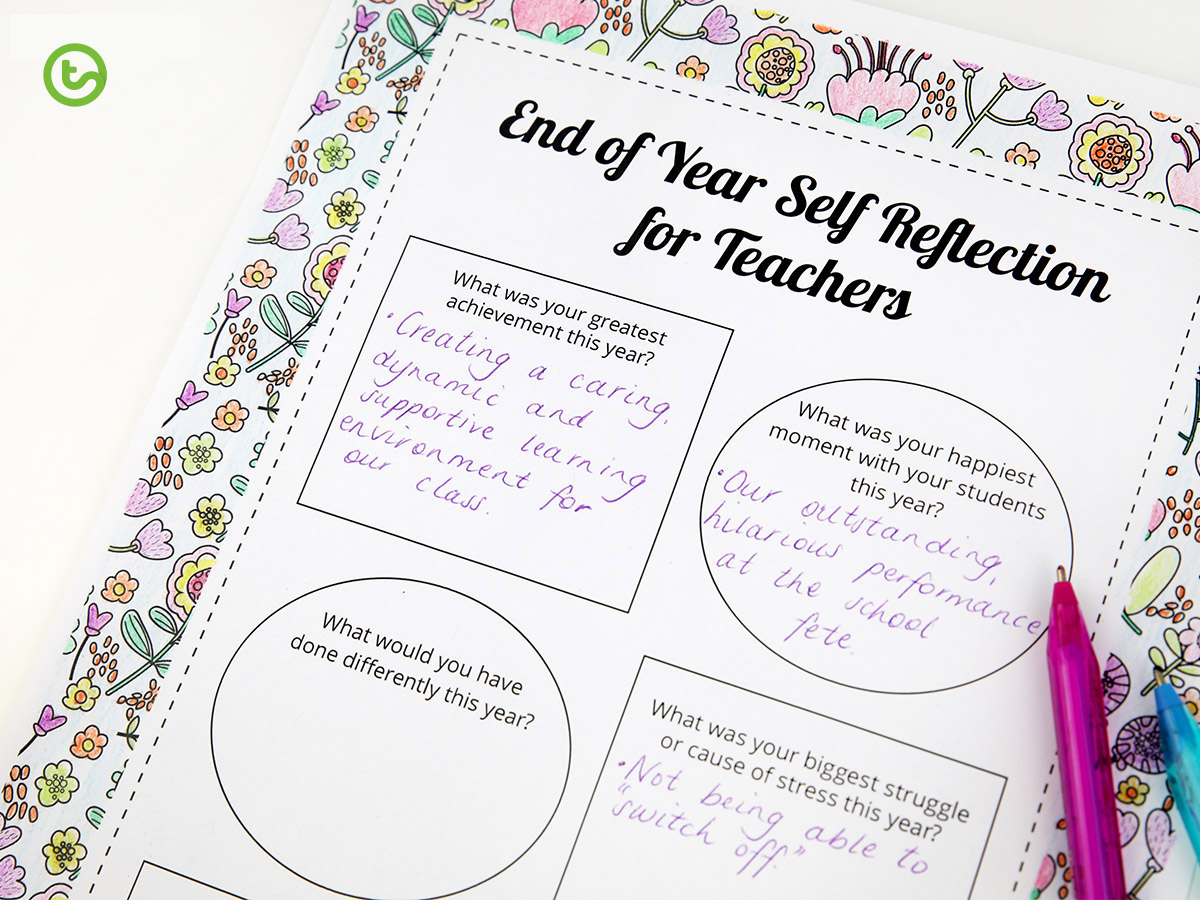 t
End of Year Self Reflection
for Teachers
What was your greatest
achievement this year?
• Creating a caring,
dynamic and
supportive learning
environment for
our class.
What was your happiest
moment with your students
this year?
• Our outstanding,
hilarious performance
at the school
fete.
What would you have
done differently this year?
What was your biggest struggle
or cause of stress this year?
• Not being able to
"switch off"